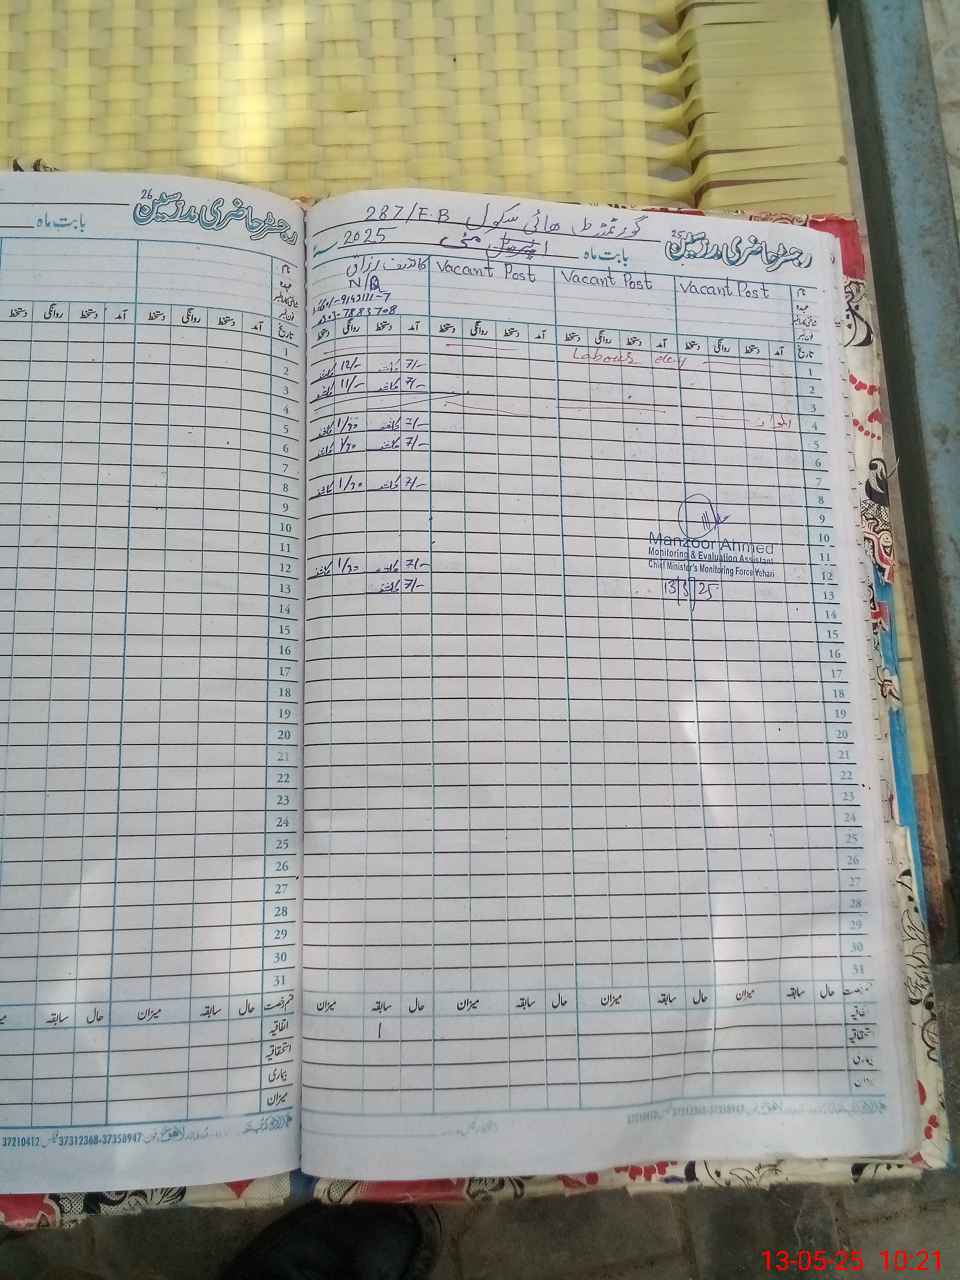 رجسٹر حاضری مدرسین 26
بابت ماہ
گورنمنٹ ہائی سکول 287/E.B
رجسٹر حاضری مدرسین 25
بابت ماہ اپریل مئی 2025
نام Vacant Post Vacant Post Vacant Post کاشف رزاق
عہدہ N/Q
فون نمبر 0303-7883708
تاریخ آمد دستخط روانگی دستخط آمد دستخط روانگی دستخط آمد دستخط روانگی دستخط آمد دستخط روانگی دستخط
1 Labour day
2 7/- کاشف 12/- کاشف
3 7/- کاشف 11/- کاشف
4 اتوار
5 7/- کاشف 1/30 کاشف
6 7/- کاشف 1/30 کاشف
7
8 7/- کاشف 1/30 کاشف
9
10
11
12 7/- کاشف 1/30 کاشف
13 7/- کاشف
Manzoor Ahmed
Monitoring & Evaluation Assistant
Chief Minister's Monitoring Force Vehari
13/5/25
14
15
16
17
18
19
20
21
22
23
24
25
26
27
28
29
30
31
قسم رخصت حال سابقہ میزان حال سابقہ میزان حال سابقہ میزان حال سابقہ میزان
اتفاقیہ 1
استحقاقیہ
بیماری
میزان
نام
عہدہ
فون نمبر
تاریخ آمد دستخط روانگی دستخط آمد دستخط روانگی دستخط
1
2
3
4
5
6
7
8
9
10
11
12
13
14
15
16
17
18
19
20
21
22
23
24
25
26
27
28
29
30
31
قسم رخصت حال سابقہ میزان حال سابقہ
اتفاقیہ
استحقاقیہ
بیماری
میزان
37210412 37312368-37358947
13-05-25 10:21